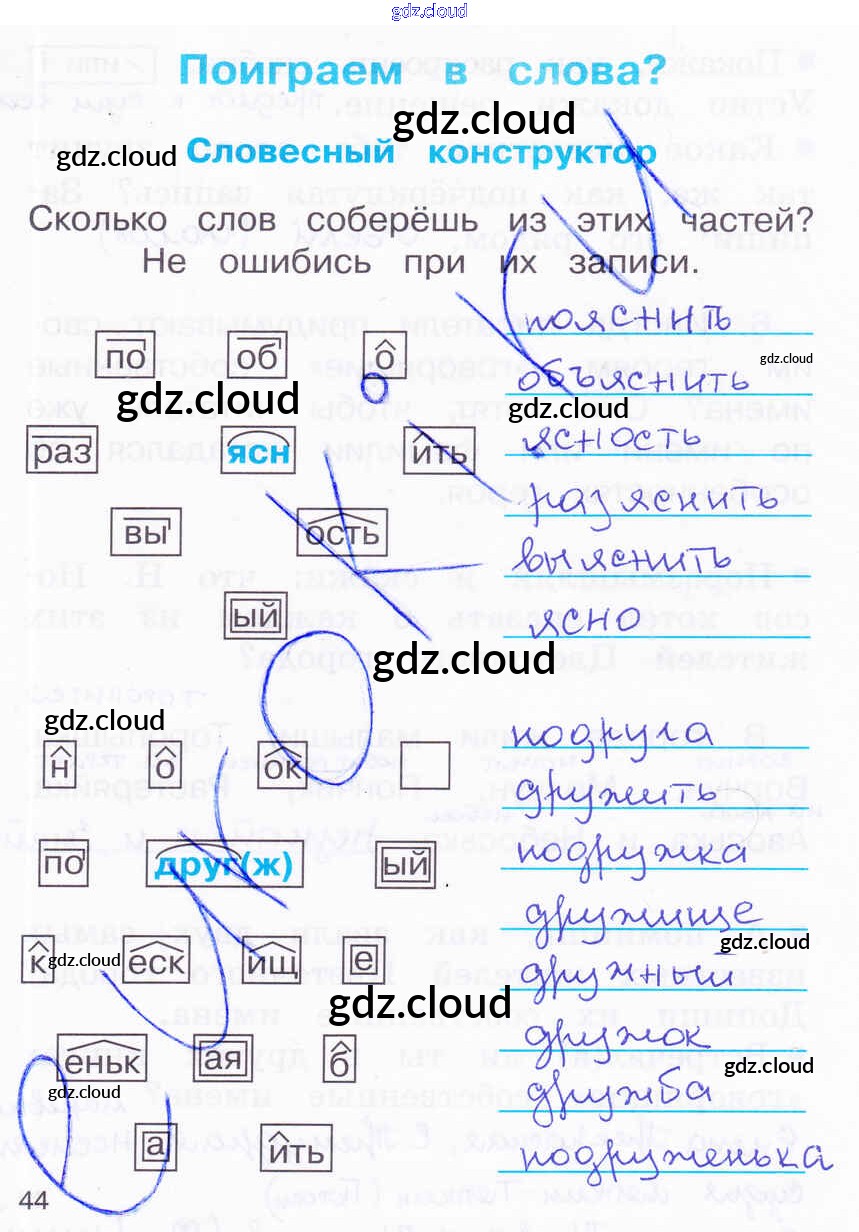 gdz.cloud
Поиграем в слова?
gdz.cloud
gdz.cloud
Словесный конструктор
Сколько слов соберёшь из этих частей?
Не ошибись при их записи.
пояснить
по об о
о
gdz.cloud
объяснить
gdz.cloud
gdz.cloud
раз ясн ить
ясность
разъяснить
вы ость
выяснить
ый
ясно
gdz.cloud
gdz.cloud
подруга
н о ок
дружить
по друг(ж) ый
подружка
дружище
gdz.cloud
к еск ищ е
gdz.cloud
дружный
gdz.cloud
дружок
еньк ая б
gdz.cloud
gdz.cloud
дружба
а ить
подруженька
44